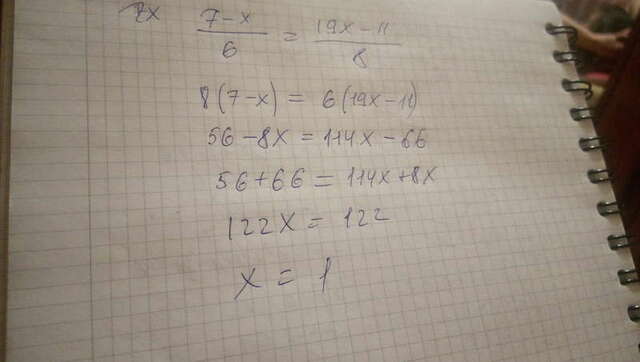 7-x/6 = 19x-11/8
8(7-x) = 6(19x-11)
56-8x = 114x-66
56+66 = 114x+8x
122x = 122
x = 1